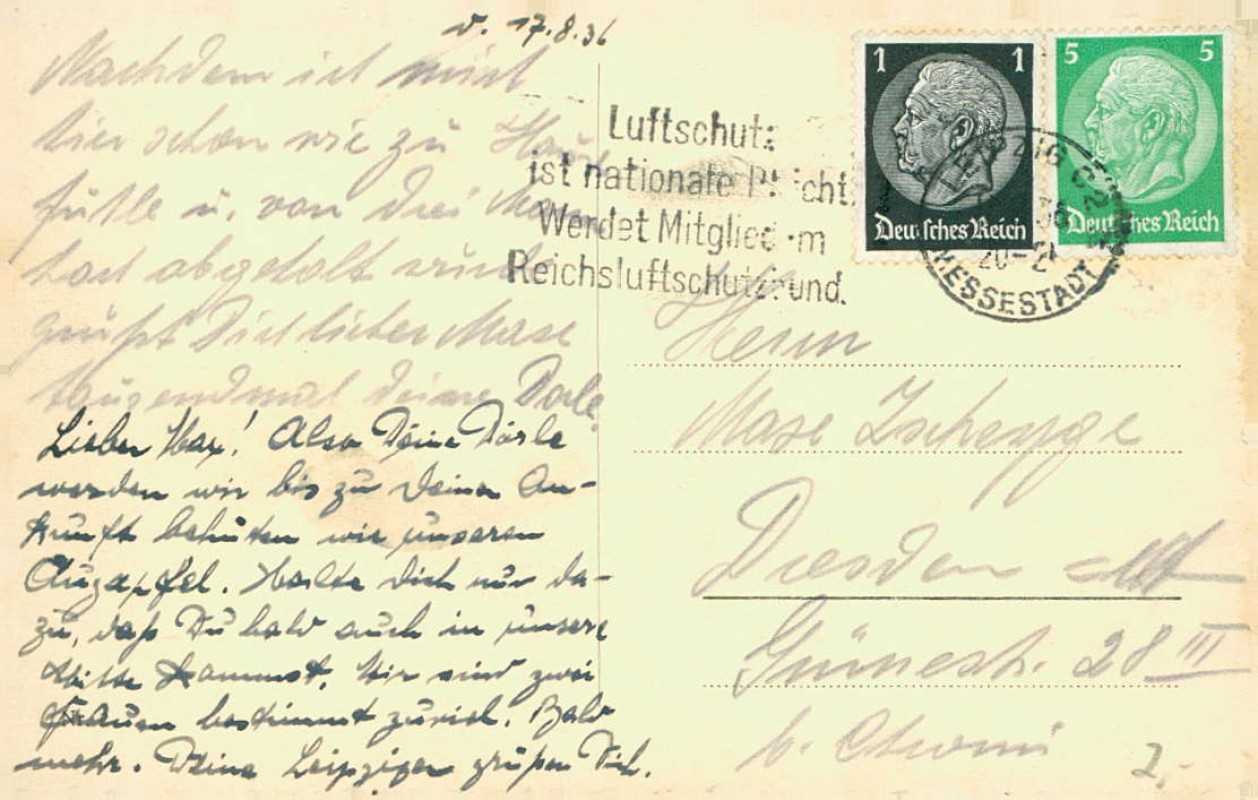 v. 17.8.36
Nachdem ich mich
hier schon wie zu Hause
fühle u. von drei Mann
hoch abgeholt wurde
grüßt Dich lieber Maxe
tausendmal deine Dorle.
Lieber Max! Also Deine Dorle
werden wir bis zu Deiner An-
kunft behüten wie unseren
Augapfel. Halte Dich nur da-
zu, daß Du bald auch in unsere
Mitte kommst. Wir sind zwei
Frauen bestimmt zuviel. Bald
mehr. Deine Leipziger grüßen Dich.
Luftschutz
ist nationale Pflicht.
Werdet Mitglied im
Reichsluftschutzbund.
1 1
Deutsches Reich
5 5
Deutsches Reich
LEIPZIG C2
36
20-21
MESSESTADT
Herrn
Maxe
Dresden Alt
28 III
b.
2,-